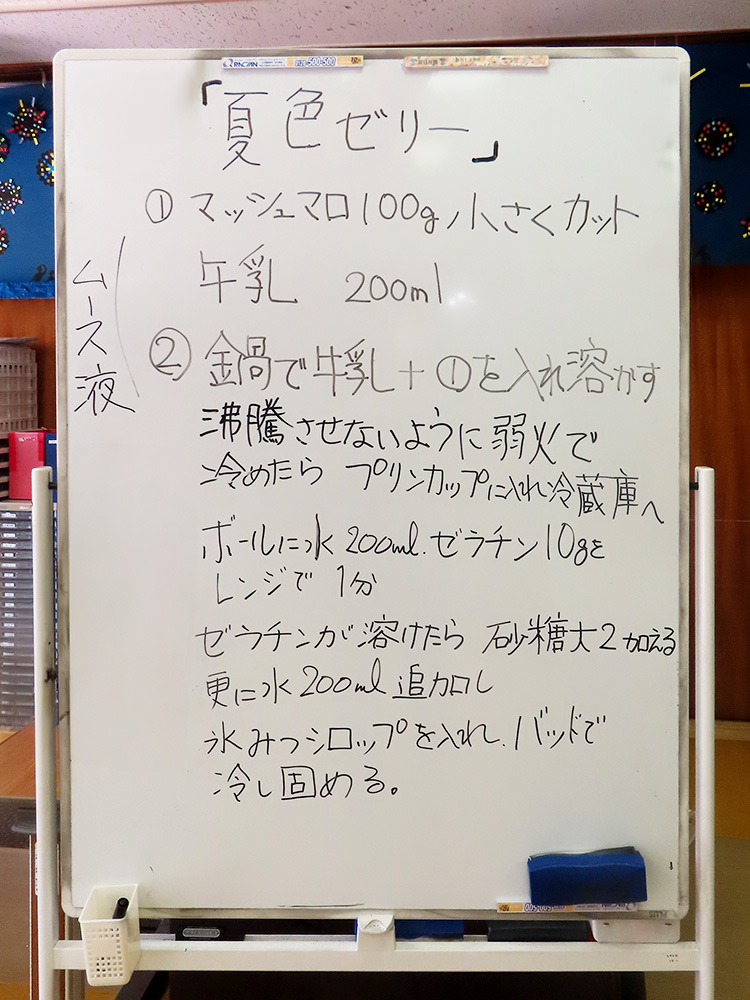 「夏色ゼリー」
① マッシュマロ100g小さくカット
牛乳 200ml
ムース液
② 鍋で牛乳+①を入れ溶かす
沸騰させないように弱火で
冷めたら プリンカップに入れ冷蔵庫へ
ボールに水200ml.ゼラチン10gを
レンジで 1分
ゼラチンが溶けたら 砂糖大2加える
更に水200ml追加し
氷みつシロップを入れ、バッドで
冷し固める。